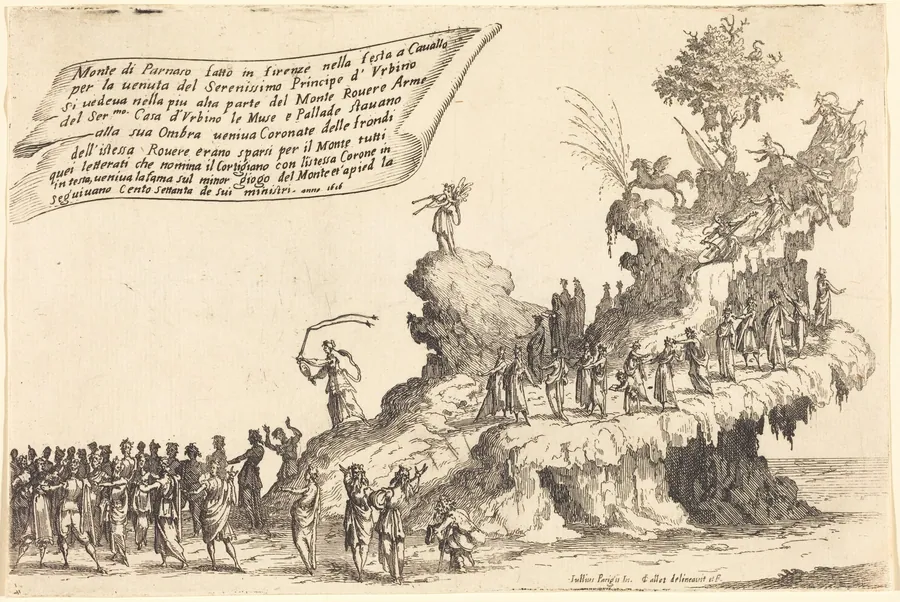 Monte di Parnaso fatto in firenze nella festa a Cauallo
per la uenuta del Serenissimo Principe d' Vrbino
Si uedeua nella piu alta parte del Monte Rouere Arme
del Ser.mo. Casa d'Vrbino le Muse e Pallade stauano
alla sua Ombra ueniua Coronate delle frondi
dell' istessa Rouere erano sparsi per il Monte tutti
quei letterati che nomina il Cortigiano con l'istessa Corone in
in testa, ueniua la fama sul minor giogo del Monte et' apied la
seguiuano Cento Settanta de sui ministri - anno 1616
Iullius Parigii In. Callot delineauit et F.